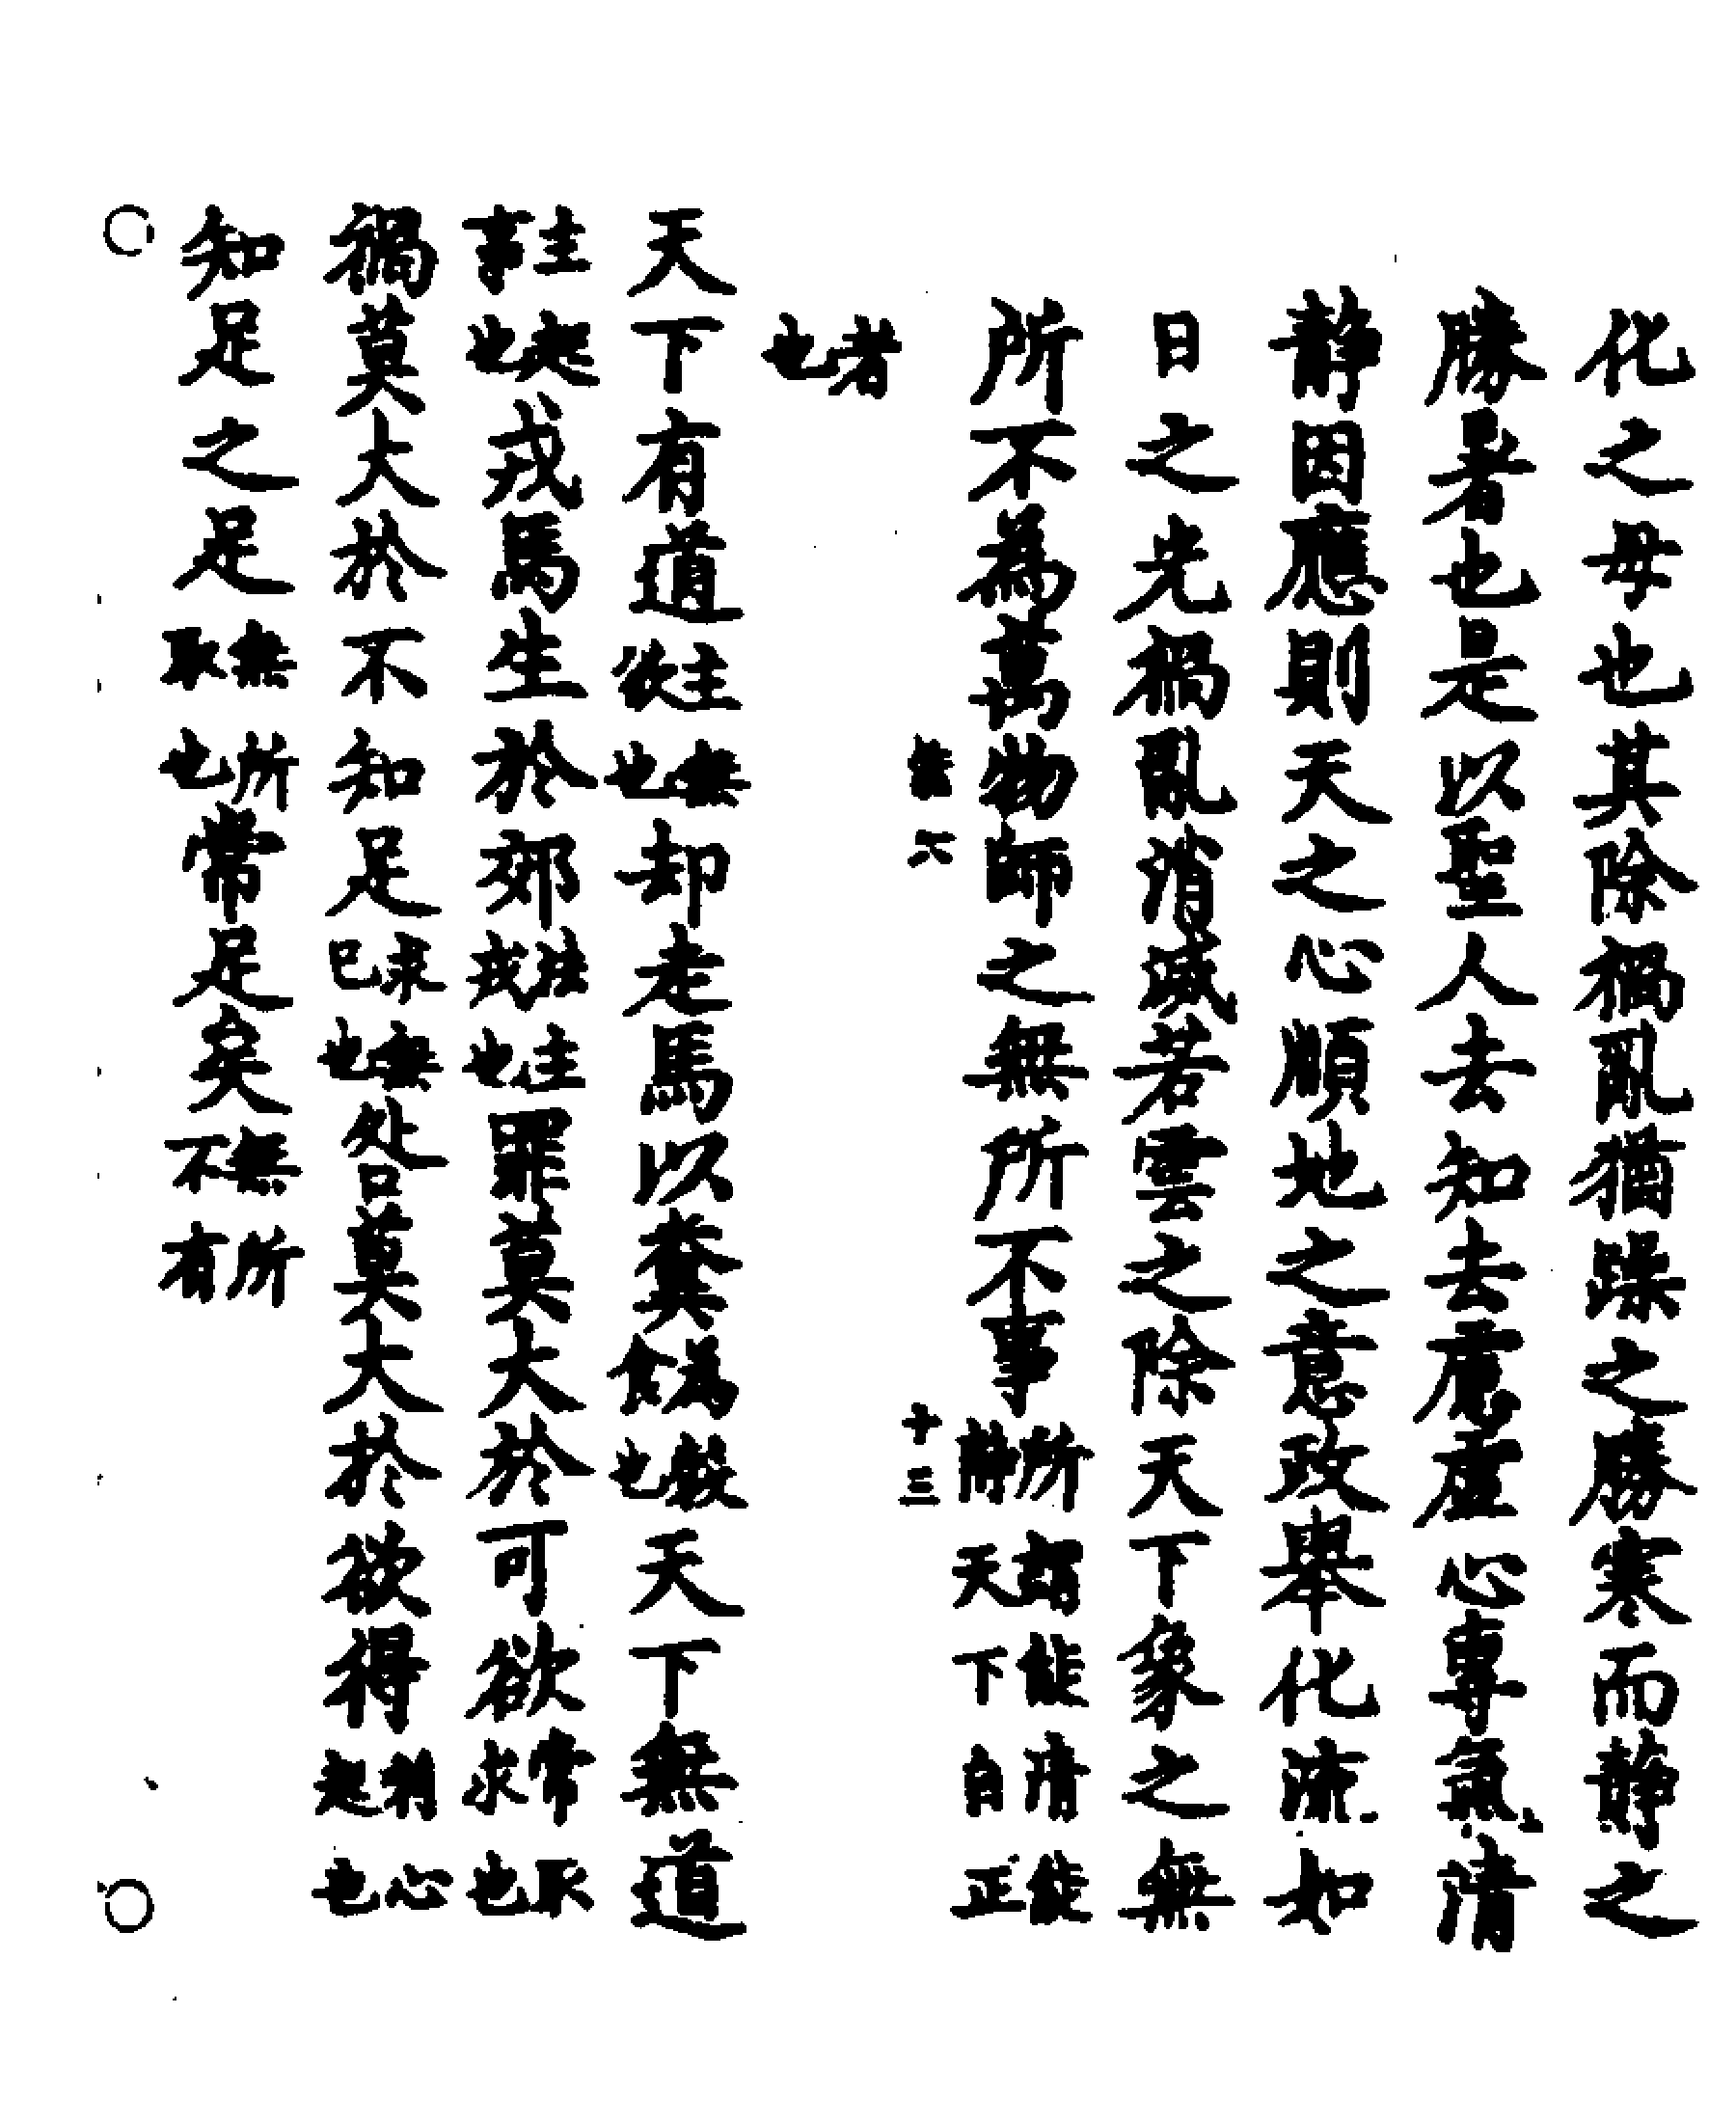 化之母也其除禍亂猶躁之勝寒而靜之
勝暑也是以聖人去知去慮虛心專氣清
靜因應則天之心順地之意政舉化流如
日之光禍亂消滅若雲之除天下象之無
所不為萬物師之無所不事所謂能清能靜天下自正
無六 十三
者也
天下有道主無欲也却走馬以糞為穀食也天下無道
主起事也戎馬生於郊法主戎也罪莫大於可欲常取求也
禍莫大於不知足求無已也咎莫大於欲得利心起也
知足之足無所取也常足矣無所不有